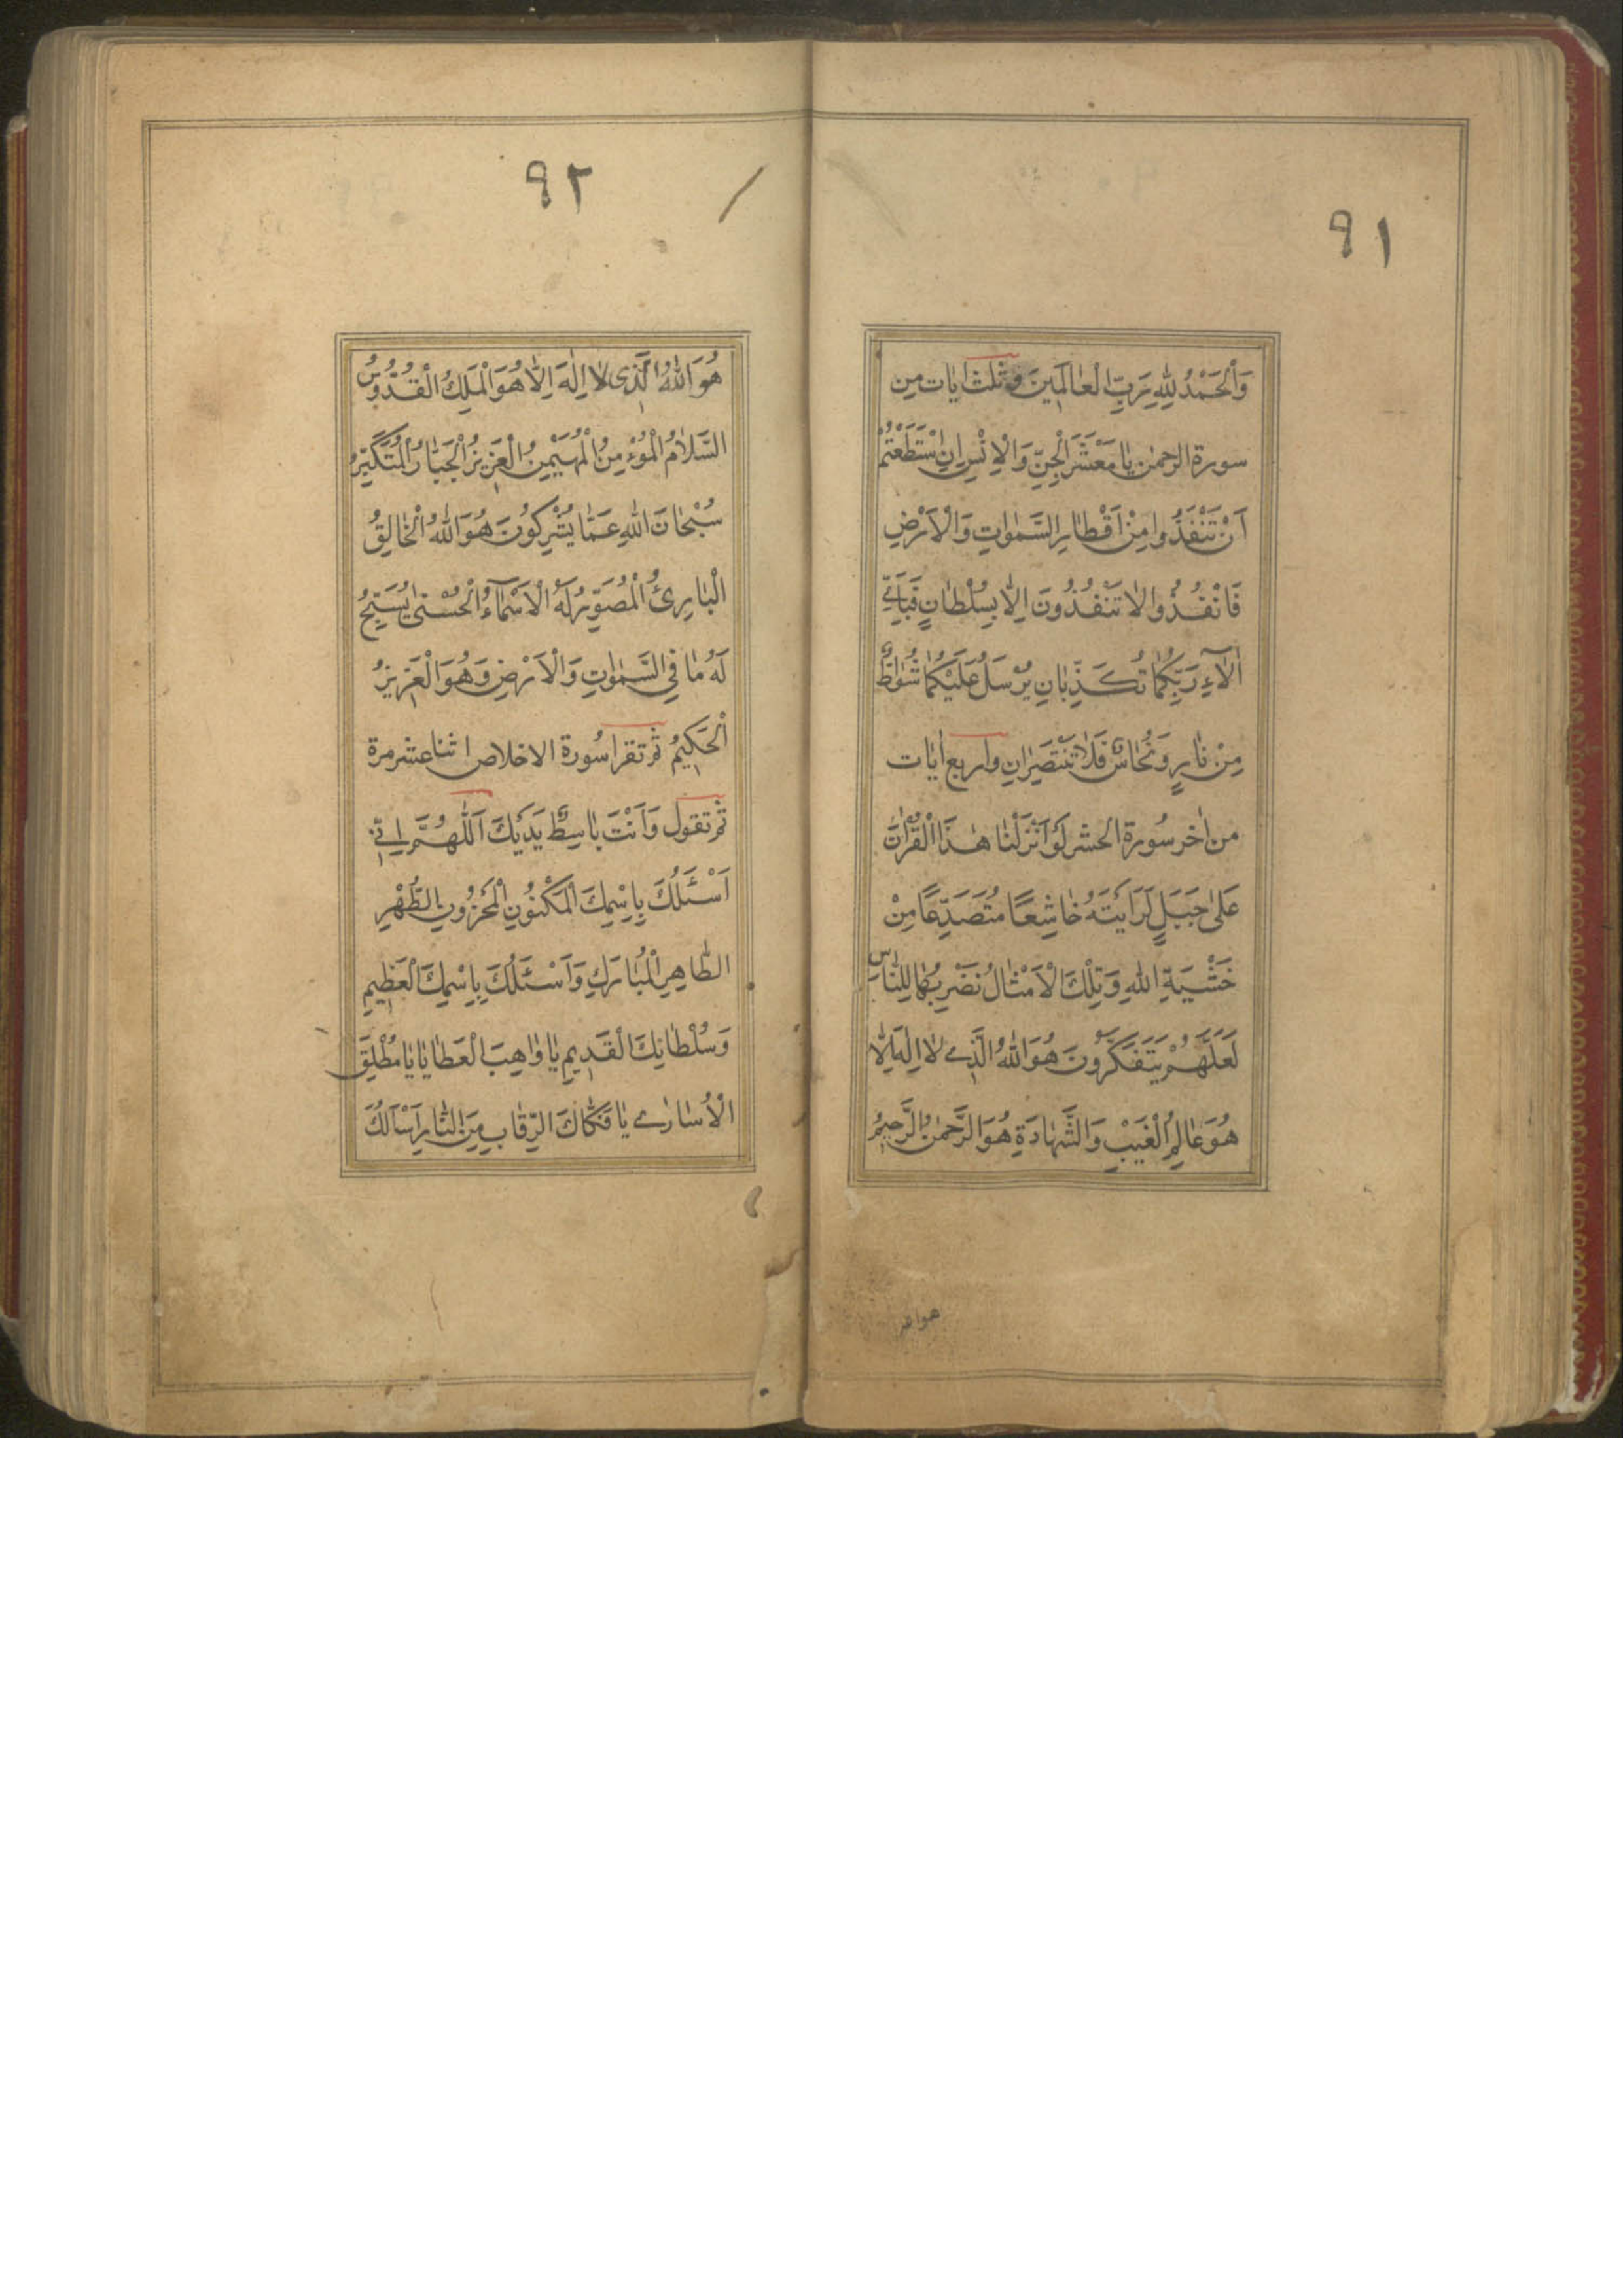 ٩١
وَالْحَمْدُ لِلّٰهِ رَبِّ الْعٰالَمِينَ وثلث ايات من
سورة الرحمن يٰا مَعْشَرَ الْجِنِّ وَالْاِنْسِ اِنِ اسْتَطَعْتُمْ
اَنْ تَنْفُذُوا مِنْ اَقْطٰارِ السَّمٰوٰاتِ وَالْاَرْضِ
فَانْفُذُوا لٰا تَنْفُذُونَ اِلّٰا بِسُلْطٰانٍ فَبِاَيِّ
اٰلٰآءِ رَبِّكُمٰا تُكَذِّبٰانِ يُرْسَلُ عَلَيْكُمٰا شُوٰاظٌ
مِنْ نٰارٍ وَنُحٰاسٌ فَلٰا تَنْتَصِرٰانِ واربع ايات
من اخر سُورة الحشر لَوْ اَنْزَلْنٰا هٰذَا الْقُرْاٰنَ
عَلىٰ جَبَلٍ لَرَاَيْتَهُ خٰاشِعًا مُتَصَدِّعًا مِنْ
خَشْيَةِ اللّٰهِ وَتِلْكَ الْاَمْثٰالُ نَضْرِبُهٰا لِلنّٰاسِ
لَعَلَّهُمْ يَتَفَكَّرُونَ هُوَ اللّٰهُ الَّذِي لٰا اِلٰهَ اِلّٰا
هُوَ عٰالِمُ الْغَيْبِ وَالشَّهٰادَةِ هُوَ الرَّحْمٰنُ الرَّحِيمُ
هو الله
٩٢
هُوَ اللّٰهُ الَّذِى لٰا اِلٰهَ اِلّٰا هُوَ الْمَلِكُ الْقُدُّوسُ
السَّلٰامُ الْمُؤْمِنُ الْمُهَيْمِنُ الْعَزِيزُ الْجَبّٰارُ الْمُتَكَبِّرُ
سُبْحٰانَ اللّٰهِ عَمّٰا يُشْرِكُونَ هُوَ اللّٰهُ الْخٰالِقُ
الْبٰارِئُ الْمُصَوِّرُ لَهُ الْاَسْمٰآءُ الْحُسْنىٰ يُسَبِّحُ
لَهُ مٰا فِي السَّمٰوٰاتِ وَالْاَرْضِ وَهُوَ الْعَزِيزُ
الْحَكِيمُ ثم تقرا سُورة الاخلاص اثنا عشر مرة
ثم تقول وَاَنْتَ بٰاسِطٌ يَدَيْكَ اَللّٰهُمَّ اِنّي
اَسْئَلُكَ بِاِسْمِكَ الْمَكْنُونِ الْمَخْزُونِ الطُّهْرِ
الطّٰاهِرِ الْمُبٰارَكِ وَاَسْئَلُكَ بِاِسْمِكَ الْعَظِيمِ
وَسُلْطٰانِكَ الْقَدِيمِ يٰا وٰاهِبَ الْعَطٰايٰا يٰا مُطْلِقَ
الْاُسٰارىٰ يٰا فَكّٰاكَ الرِّقٰابِ مِنَ النّٰارِ اَسْاَلُكَ